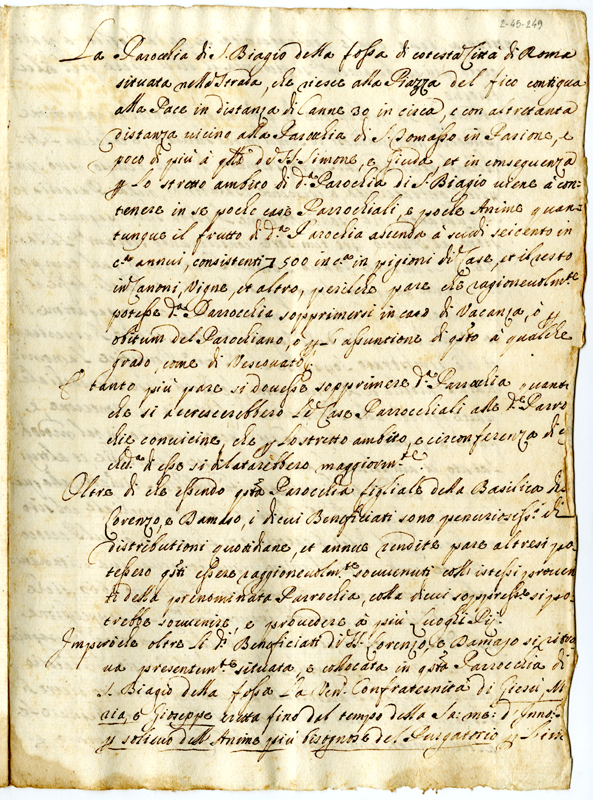 2-45-249
La Parocchia di S. Biagio della fossa di cotesta Città di Roma
situata nella Strada, che riesce alla Piazza del fico contigua
alla Pace in distanza di Canne 30 in circa, e con altretanta
distanza vicino alla Parochia di S. Tomasso in Parione, e
poco di più à qlla de SS. Simone, e Giuda, et in consequenza
p lo stretto ambito di d.a Parochia di S. Biagio viene à con-
tenere in se poche case Parrochiali, e poche Anime quan-
tunque il frutto di d.a Parochia ascenda à scudi seicento in
c.a annui, consistenti 500 in c.a in pigioni di Case, et il resto
in Canoni, Vigne, et altro, perilche pare che ragionevolm.te
potesse d.a Parrocchia sopprimersi in caso di Vacanza, ò p
obitum del Parochiano, ò p l'assuntione di qsto à qualche
grado, come di Vescovato
E tanto più pare si dovesse sopprimere d.a Parrochia quant
che si accrescerebbero le Case Parrocchiali alle d.e Parro
chie convicine, che p lo stretto ambito, e circonferenza di
d'esse si dilatarebbero maggiorm.te
Oltre di che essendo qsta Parochia figliale della Basilica di
Lorenzo, e Damaso, i di cui Beneficiati sono penuriosiss.i di
distributioni quotidiane, et annue rendite pare altresi po-
tessero qsti essere raggionevolm.te souvenuti colli istessi proven
ti della prenominata Parrochia, colla di cui soppress.e si po
trebbe souvenire, e provedere à più Luoghi Pij.
Imperòche oltre li d.i Beneficiati di S. Lorenzo, e Damaso si ritro
va presentem.te situata, e collocata in qsta Parrochia di
S. Biagio della fossa La Ven. Confraternità di Giesù, M
ria, e Gioseppe eretta fino dal tempo della Sa: me: d'Inno
p sollievo dell'Anime più bisognose del Purgatorio